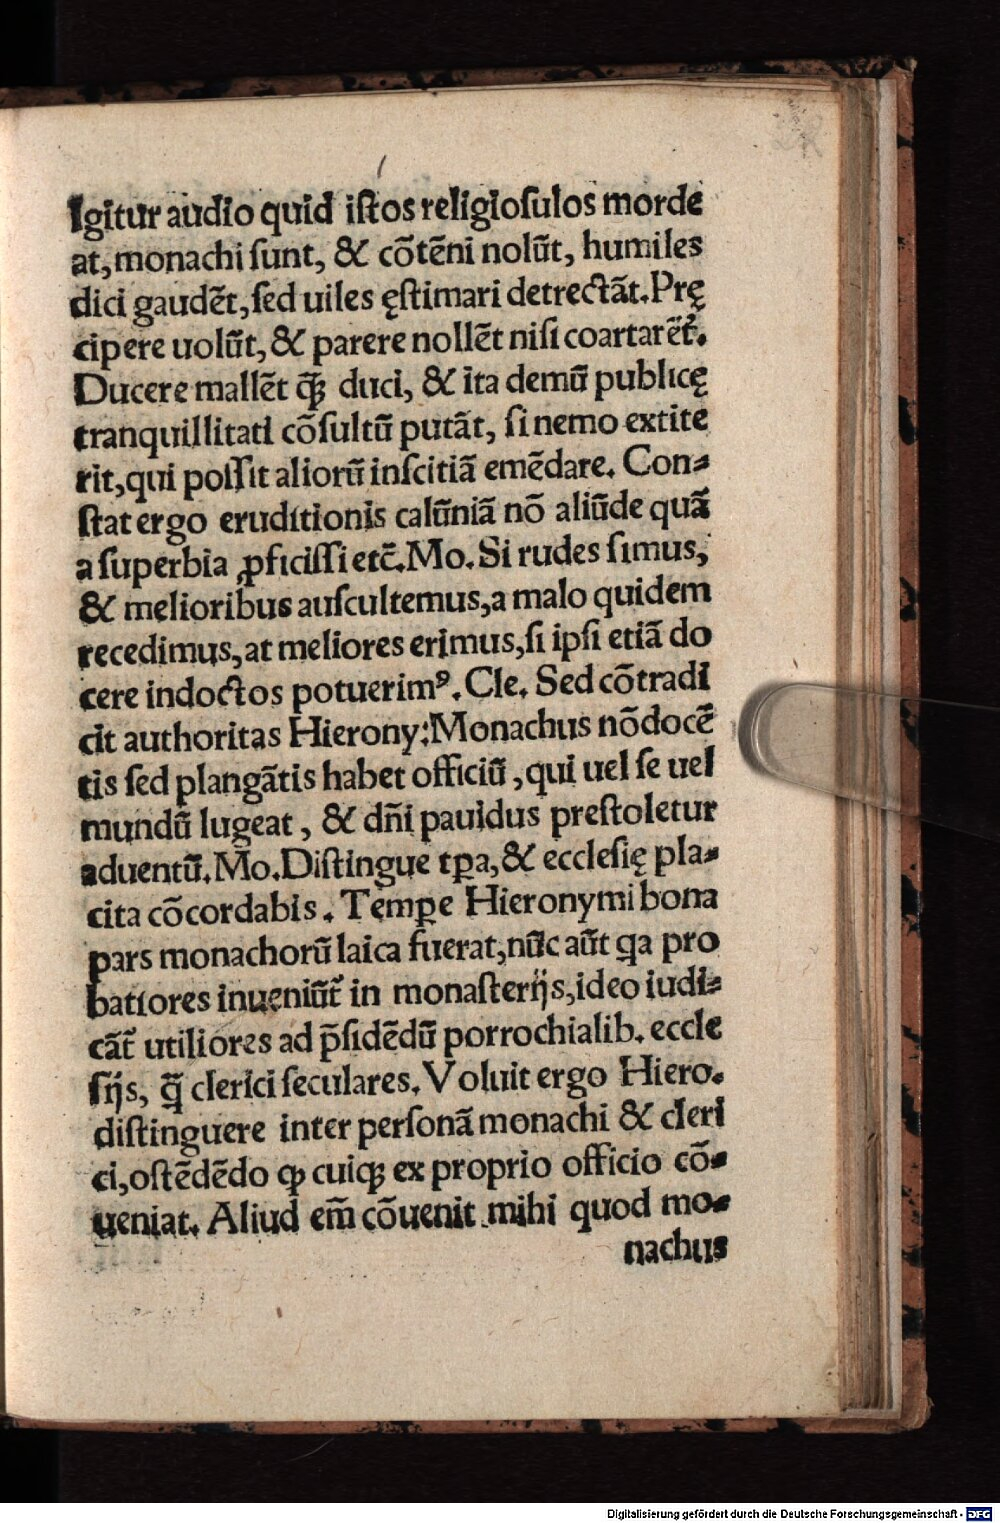 Igitur audio quid iſtos religioſulos morde
at, monachi ſunt, & cõtẽni nolũt, humiles
dici gaudẽt, ſed uiles ęſtimari detrectãt. Prę
cipere uolũt, & parere nollẽt niſi coartarẽt᷑.
Ducere mallẽt q̃ꝫ duci, & ita demũ publicę
tranquillitati cõſultũ putãt, ſi nemo extite
rit, qui poſſit aliorũ inſcitiã emẽdare. Con⸗
ſtat ergo eruditionis calũniã nõ aliũde quã
a ſuperbia ꝓficiſſi etc̃. Mo. Si rudes ſimus,
& melioribus auſcultemus, a malo quidem
recedimus, at meliores erimus, ſi ipſi etiã do
cere indoctos potuerimꝰ. Cle. Sed cõtradi
cit authoritas Hierony: Monachus nõ docẽ
tis ſed plangãtis habet officiũ, qui uel ſe uel
mundũ lugeat, & dñi pauidus preſtoletur
aduentũ. Mo. Diſtingue tꝑa, & eccleſię pla⸗
cita cõcordabis. Temꝑe Hieronymi bona
pars monachorũ laica fuerat, nũc aũt qa pro
batiores inueniũt᷑ in monaſterijs, ideo iudi⸗
cãt᷑ utiliores ad p̃ſidẽdũ porrochialib. eccle
ſijs, q̃ clerici ſeculares. Voluit ergo Hiero.
diſtinguere inter perſonã monachi & cleri
ci, oſtẽdẽdo ꝙ cuiqꝫ ex proprio officio cõ⸗
ueniat. Aliud em̃ cõuenit mihi quod mo⸗
nachus
Digitalisierung gefördert durch die Deutsche Forschungsgemeinschaft - DFG